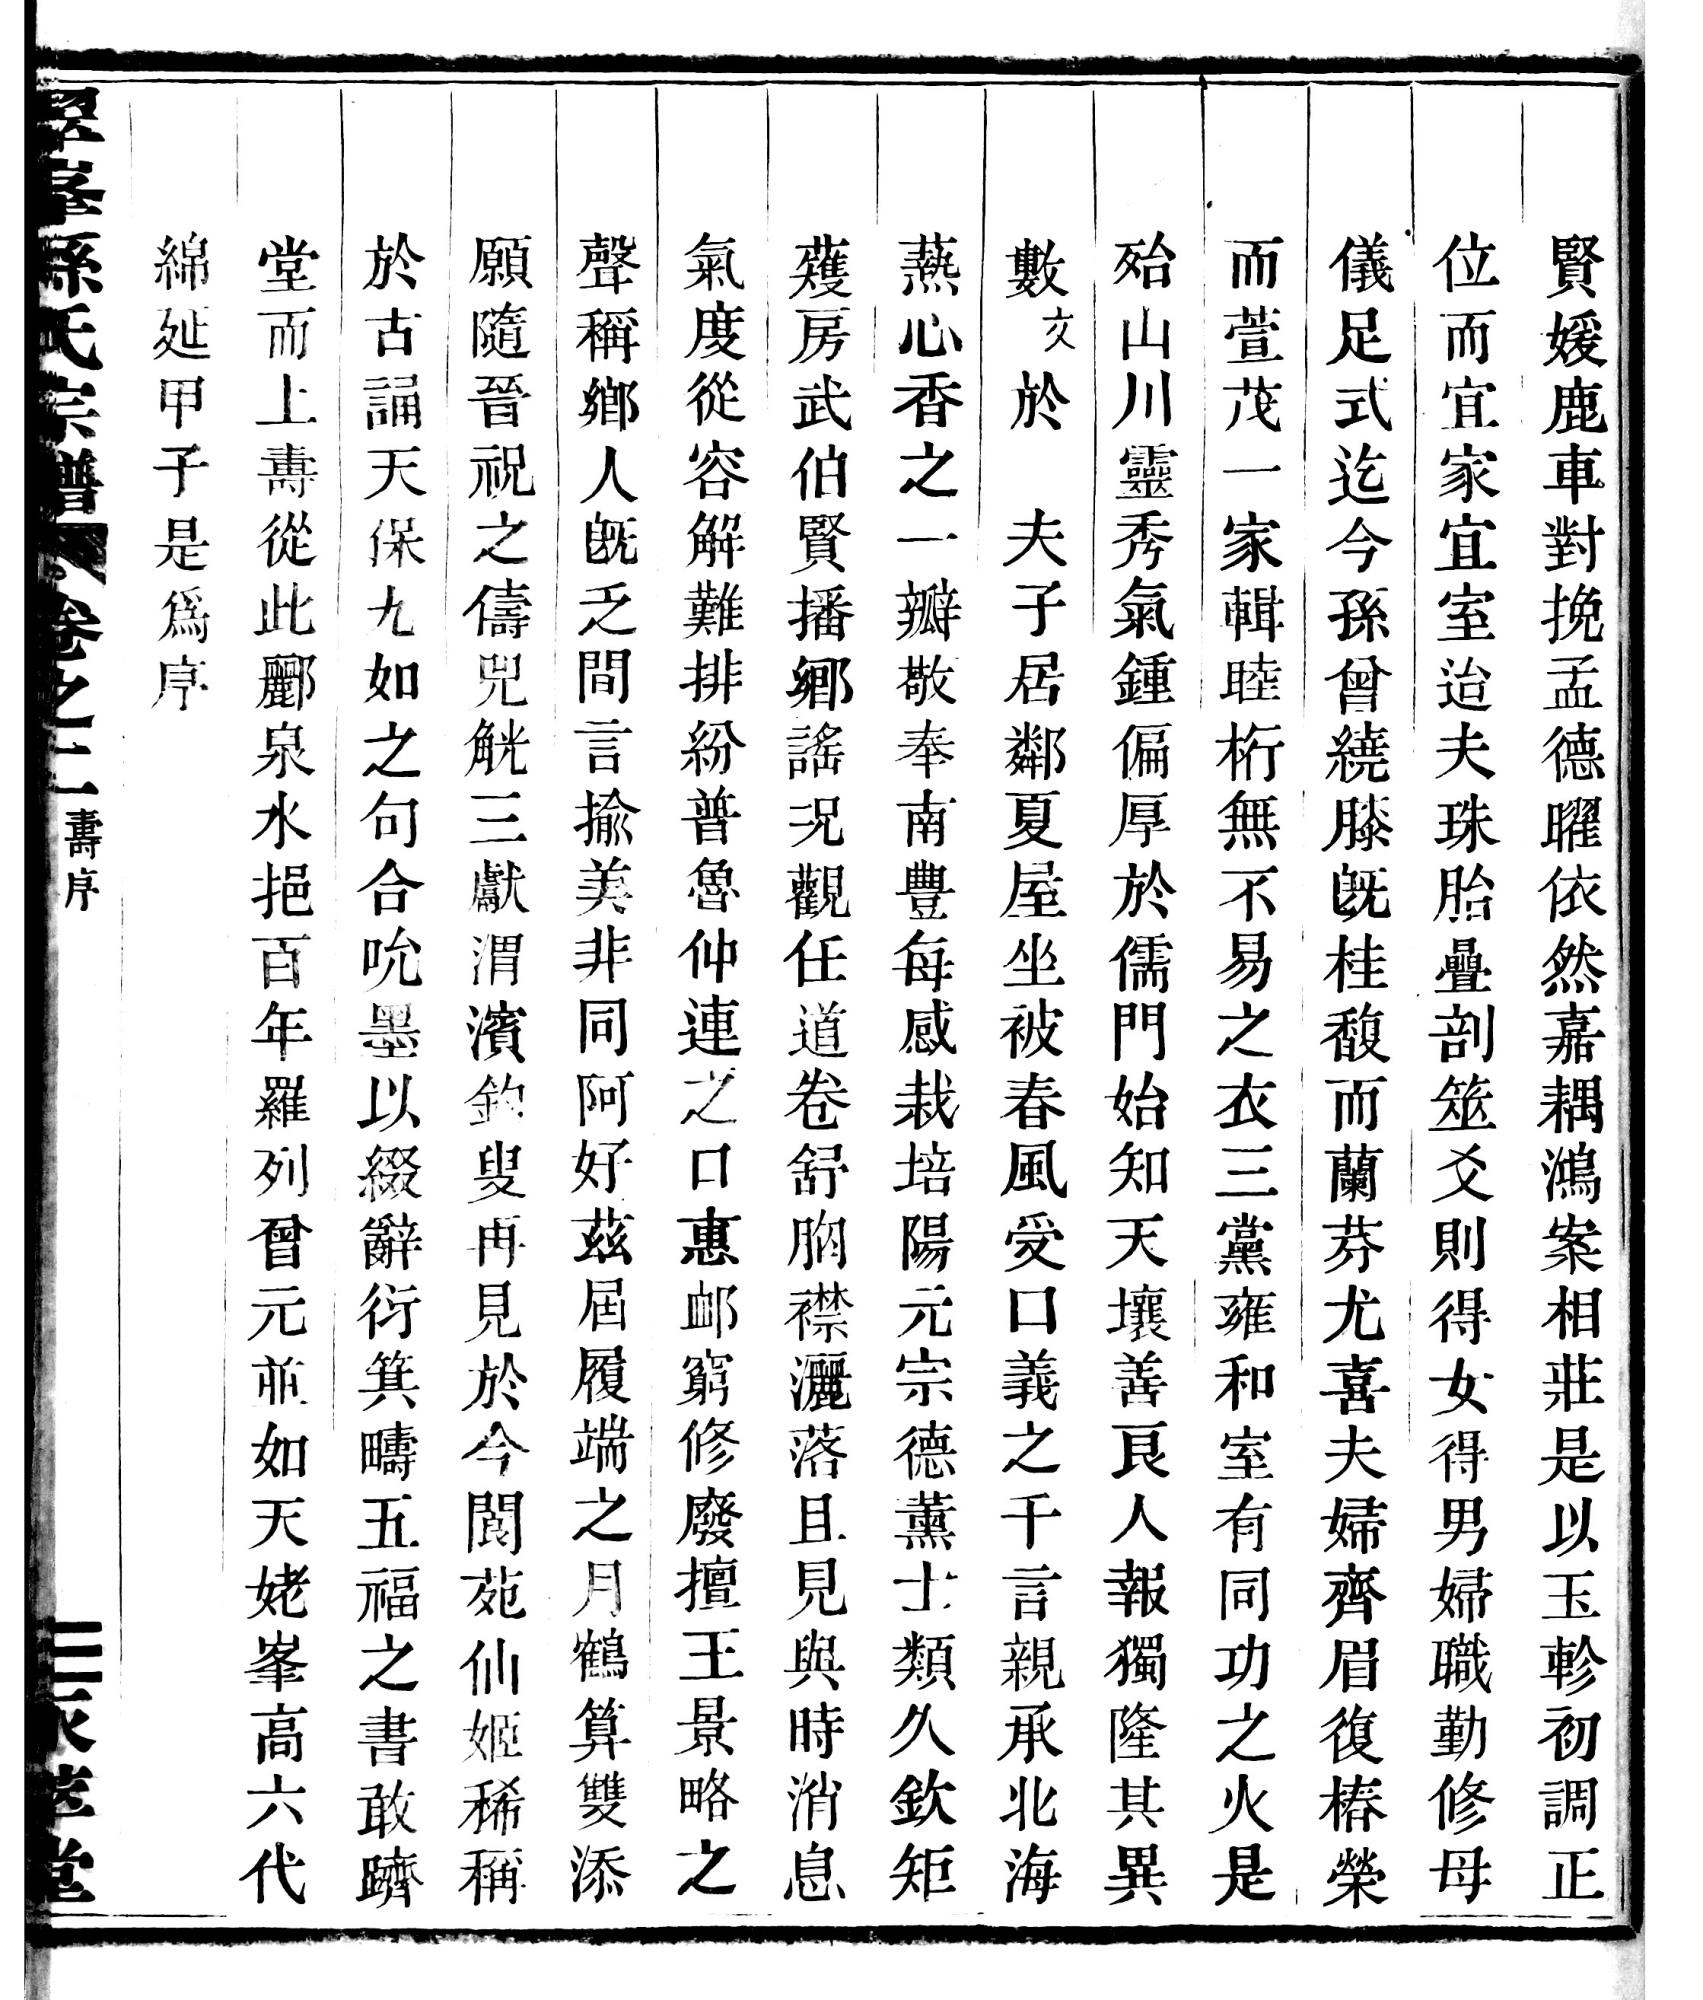 賢媛鹿車對挽孟德曜依然嘉耦鴻案相莊是以玉軫初調正
位而宜家宜室迨夫珠胎疊剖筮爻則得女得男婦職勤修母
儀足式迄今孫曾繞膝旣桂馥而蘭芬尤喜夫婦齊眉復椿榮
而萱茂一家輯睦桁無不易之衣三黨雍和室有同功之火是
殆山川靈秀氣鍾偏厚於儒門始知天壤善良人報獨隆其異
數文於 夫子居鄰夏屋坐被春風受口義之千言親承北海
爇心香之一瓣敬奉南豐每感栽培陽元宗德薰士類久欽矩
矱房武伯賢播鄉謠况觀任道卷舒胸襟灑落且見與時消息
氣度從容解難排紛普魯仲連之口惠卹窮修廢擅王景略之
聲稱鄉人旣乏間言揄美非同阿好茲屆履端之月鶴算雙添
願隨晉祝之儔兕觥三獻渭濱釣叟再見於今閬苑仙姬稀稱
於古誦天保九如之句合吮墨以綴辭衍箕疇五福之書敢躋
堂而上壽從此酈泉水挹百年羅列曾元並如天姥峯高六代
綿延甲子是爲序
翠峯孫氏宗譜 卷之二 壽序 三 永萃堂